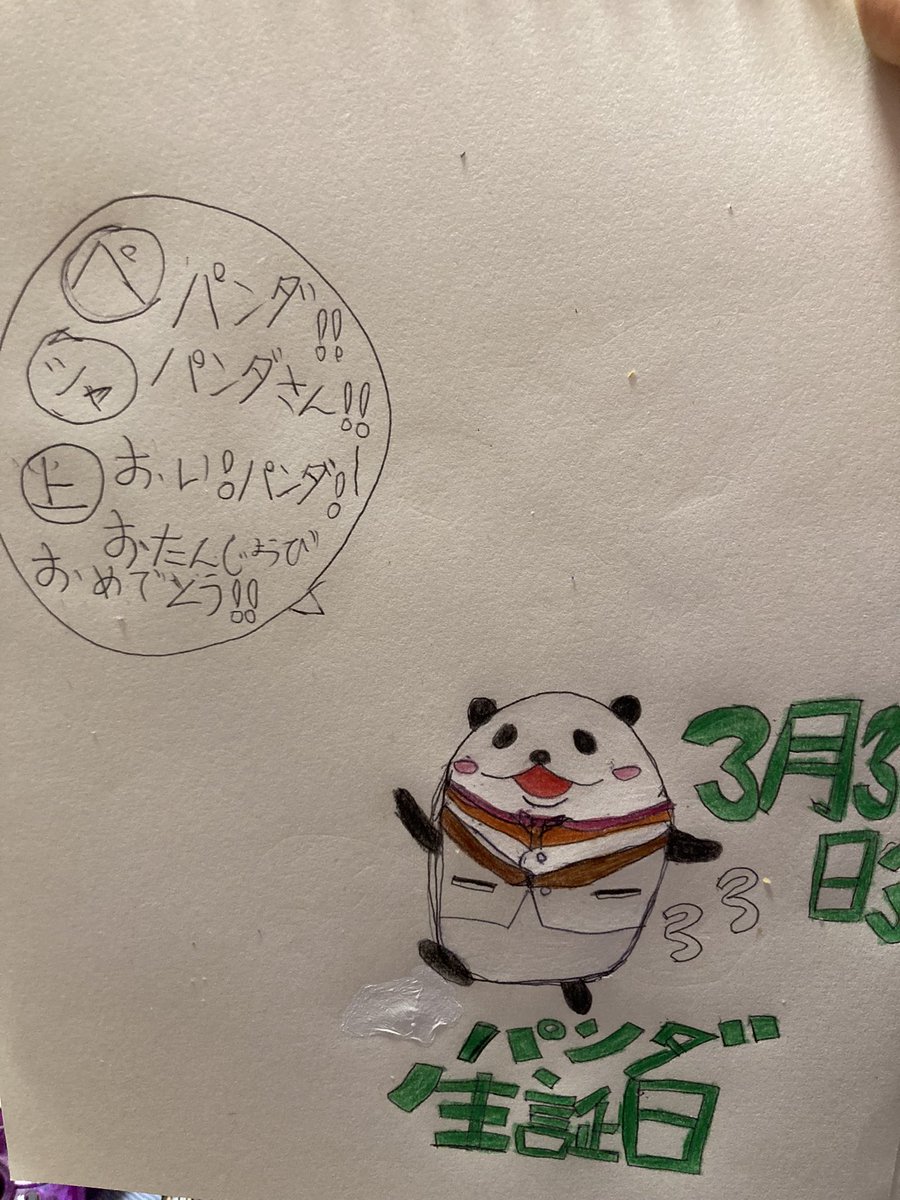 ペ パンダ!!
シャ パンダさん!!
上 おい!パンダー!
おたんじょうび
おめでとう!!
3月3
日
33
パンダ
生証日